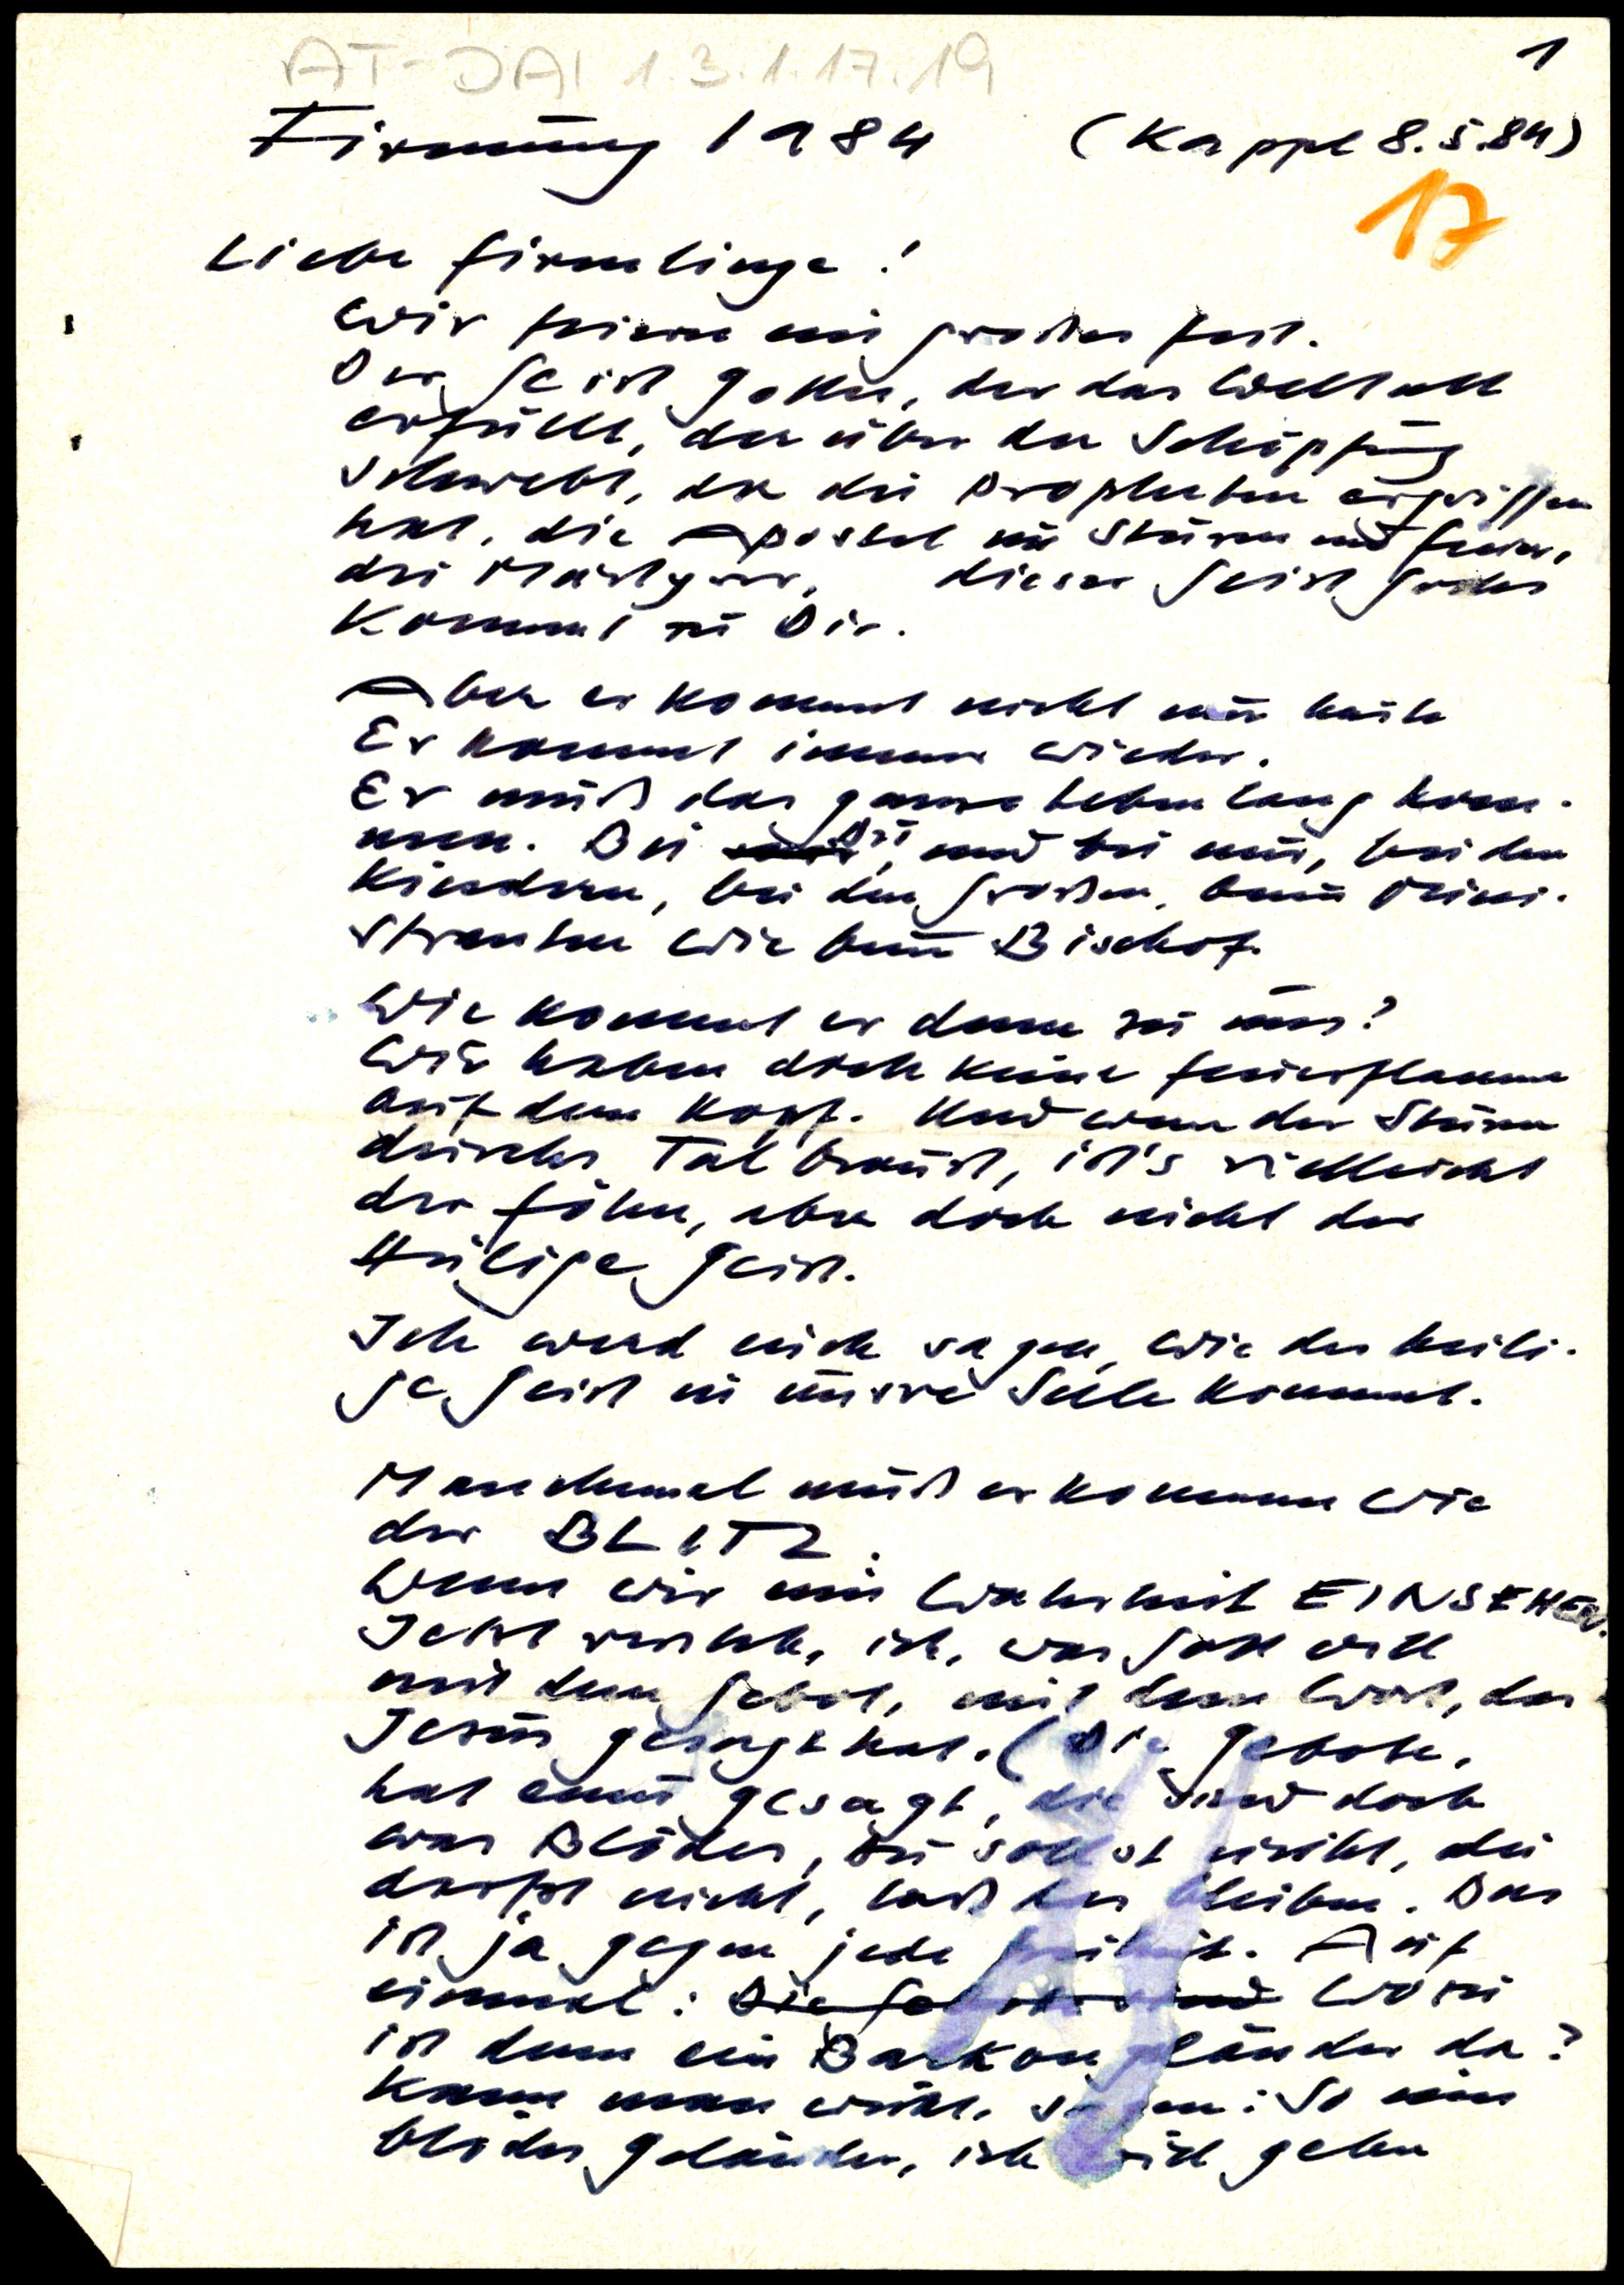 AT-DAI 1.3.1.17.19
1
Firmung 1984 (Kappl 8.5.84)
17
Liebe Firmlinge!
Wir feiern ein großes Fest.
Der Geist Gottes, der das Weltall
erfüllt, der über der Schöpfung
schwebt, der die Propheten ergriffen
hat, die Apostel im Sturm und Feuer,
die Märtyrer, dieser Geist Gottes
kommt zu Dir.
Aber er kommt nicht nur heute
Er kommt immer wieder.
Er muß das ganze Leben lang kom-
men. Bei Dir, und bei mir, bei den
Kindern, bei den Großen, beim Mini-
stranten wie beim Bischof.
Wie kommt er denn zu uns?
Wir haben doch keine Feuerflamme
auf dem Kopf. Und wenn der Sturm
durchs Tal braust, ist's vielleicht
der Föhn, aber doch nicht der
Heilige Geist.
Ich werd euch sagen, wie der heili-
ge Geist in unsre Seele kommt.
Manchmal muß er kommen wie
der BLITZ.
Wenn wir eine Wahrheit EINSEHEN.
Jetzt verstehe ich, was Gott will
mit dem Gebot, mit dem Wort, das
Jesus gesagt hat. (Die Gebote,
hat einer gesagt, die sind doch
was Blödes, du sollst nicht, du
darfst nicht, laß das bleiben. Das
ist ja gegen jede Freiheit. Auf
einmal: Die Gebote sind Wozu
ist denn ein Balkongeländer da?
Kann man wohl sagen: So ein
blödes Geländer, ich will gehn